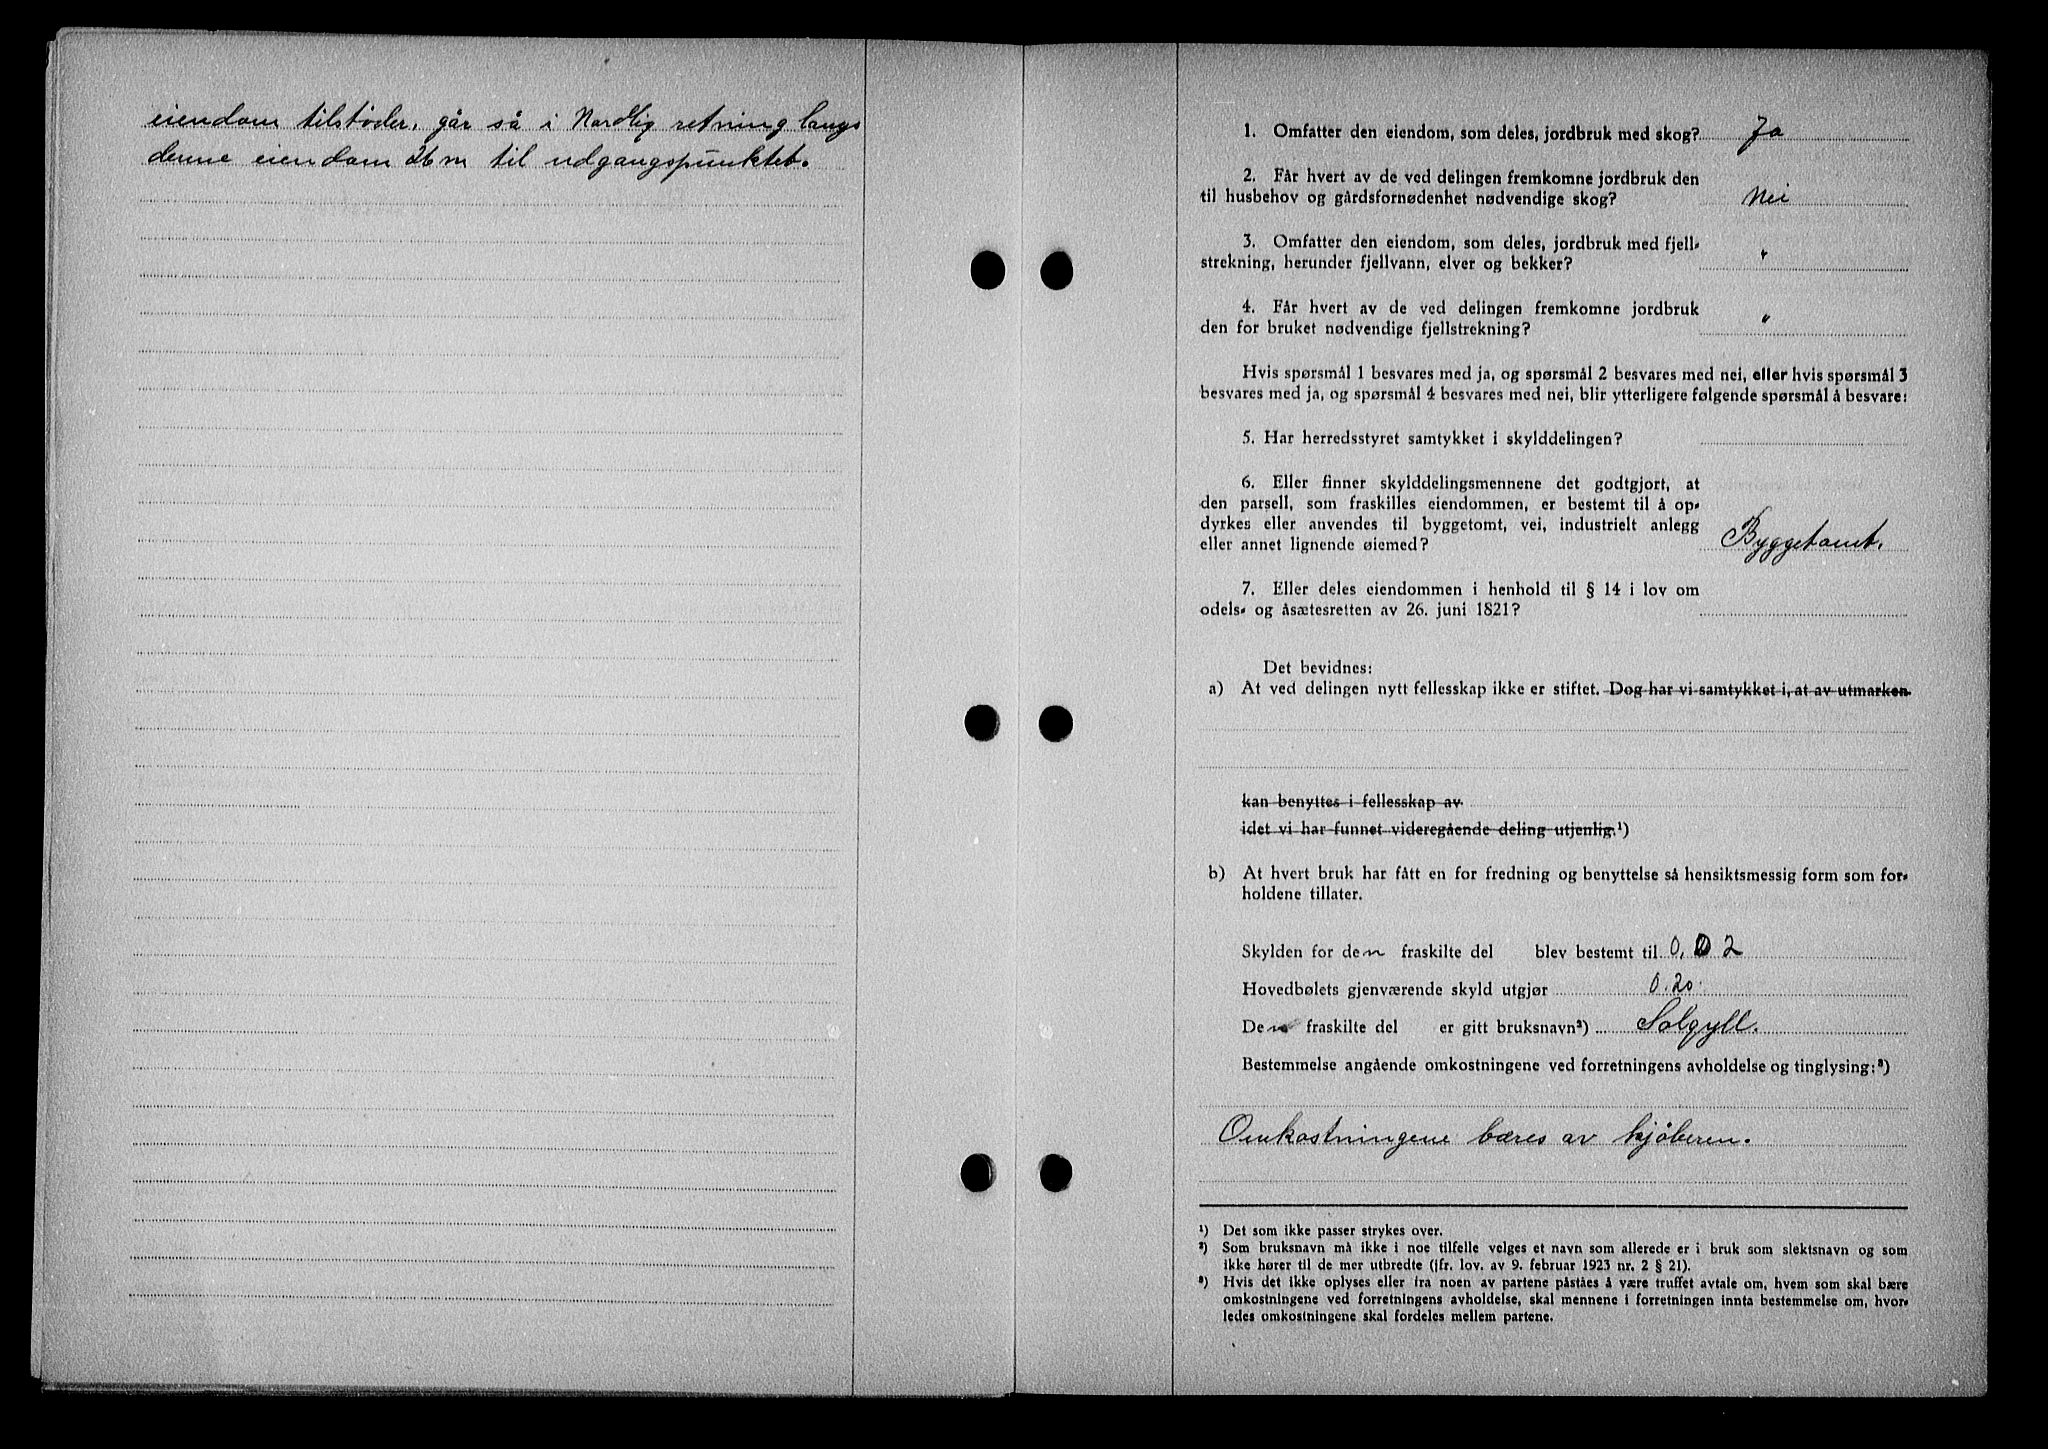 eiendom tilstöder, går så i Nordlig retning langs
denne eiendom 26 m til udgangspunktet.
1. Omfatter den eiendom, som deles, jordbruk med skog? Ja
2. Får hvert av de ved delingen fremkomne jordbruk den
til husbehov og gårdsfornødenhet nødvendige skog? Nei
3. Omfatter den eiendom, som deles, jordbruk med fjell-
strekning, herunder fjellvann, elver og bekker? "
4. Får hvert av de ved delingen fremkomne jordbruk
den for bruket nødvendige fjellstrekning? "
Hvis spørsmål 1 besvares med ja, og spørsmål 2 besvares med nei, eller hvis spørsmål 3
besvares med ja, og spørsmål 4 besvares med nei, blir ytterligere følgende spørsmål å besvare:
5. Har herredsstyret samtykket i skylddelingen?
6. Eller finner skylddelingsmennene det godtgjort, at
den parsell, som fraskilles eiendommen, er bestemt til å op-
dyrkes eller anvendes til byggetomt, vei, industrielt anlegg
eller annet lignende øiemed? Byggetomt.
7. Eller deles eiendommen i henhold til § 14 i lov om
odels- og åsætesretten av 26. juni 1821?
Det bevidnes:
a) At ved delingen nytt fellesskap ikke er stiftet. Dog har vi samtykket i, at av utmarken
kan benyttes i fellesskap av
idet vi har funnet videregående deling utjenlig.¹)
b) At hvert bruk har fått en for fredning og benyttelse så hensiktsmessig form som for-
holdene tillater.
Skylden for den fraskilte del blev bestemt til 0,02
Hovedbølets gjenværende skyld utgjør 0.20.
Den fraskilte del er gitt bruksnavn²) Solgyll.
Bestemmelse angående omkostningene ved forretningens avholdelse og tinglysing:³)
Omkostningene bæres av kjöberen.
¹) Det som ikke passer strykes over.
²) Som bruksnavn må ikke i noe tilfelle velges et navn som allerede er i bruk som slektsnavn og som
ikke hører til de mer utbredte (jfr. lov. av 9. februar 1923 nr. 2 § 21).
³) Hvis det ikke oplyses eller fra noen av partene påståes å være truffet avtale om, hvem som skal bære
omkostningene ved forretningens avholdelse, skal mennene i forretningen innta bestemmelse om, hvor-
ledes omkostningene skal fordeles mellem partene.